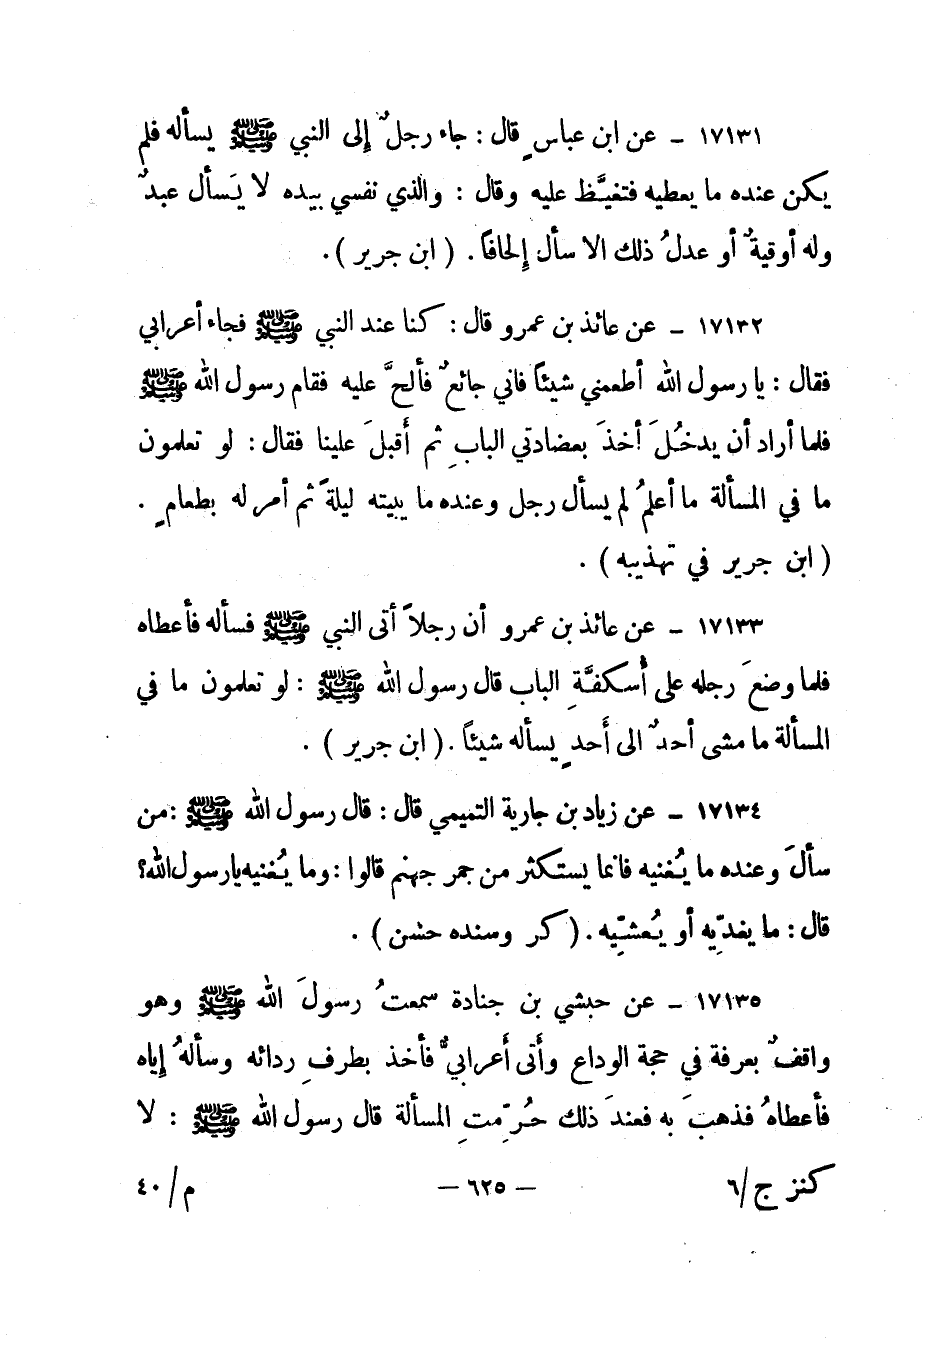 ١٧١٣١ ـ عن ابن عباسٍ قال : جاء رجلٌ إلى النبي ﷺ يسأله فلم
يكن عنده ما يعطيه فتغيَّظ عليه وقال : والذي نفسي بيده لا يَسأل عبدٌ
وله أوقيةٌ أو عدلُ ذلك الا سأل إلحافاً . ( ابن جرير ) .
١٧١٣٢ ـ عن عائذ بن عمرو قال : كنا عند النبي ﷺ فجاء أعرابي
فقال : يا رسول الله أطعمني شيئاً فاني جائعٌ فألحَّ عليه فقام رسول الله ﷺ
فلما أراد أن يدخُلَ أخذَ بعضادتي البابِ ثم أَقبلَ علينا فقال : لو تعلمون
ما في المسألة ما أعلمُ لم يسأل رجل وعنده ما يبيته ليلةً ثم أمر له بطعامٍ .
( ابن جرير في تهذيبه ) .
١٧١٣٣ ـ عن عائذ بن عمرو أن رجلاً أتى النبي ﷺ فسأله فأعطاه
فلما وضعَ رجله على أُسكفَّةِ الباب قال رسول الله ﷺ : لو تعلمون ما في
المسألة ما مشى أحدٌ الى أَحدٍ يسأله شيئاً . ( ابن جرير ) .
١٧١٣٤ ـ عن زياد بن جارية التميمي قال : قال رسول الله ﷺ : من
سألَ وعنده ما يُغنيه فانما يستكثر من جمر جهنم قالوا : وما يُغنيه يا رسول الله؟
قال : ما يغدِّيه أو يُعشِّيه . ( كر وسنده حسن ) .
١٧١٣٥ ـ عن حبشي بن جنادة سمعتُ رسولَ الله ﷺ وهو
واقفٌ بعرفة في حجة الوداع وأَتى أَعرابيٌّ فأخذ بطرفِ ردائه وسألهُ إياه
فأعطاهُ فذهبَ به فعندَ ذلك حُرِّمتِ المسألة قال رسول الله ﷺ : لا
كنز ج/٦ — ٦٢٥ — م/٤٠